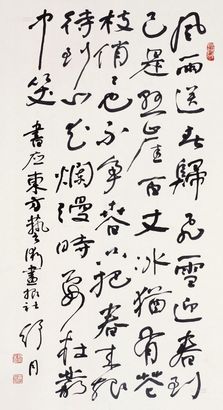 風雨送春歸飛雪迎春到
已是懸崖百丈冰猶有花
枝俏〻也不爭春只把春來報
待到山花爛漫時她在叢
中笑 書應東方藝術畫報社